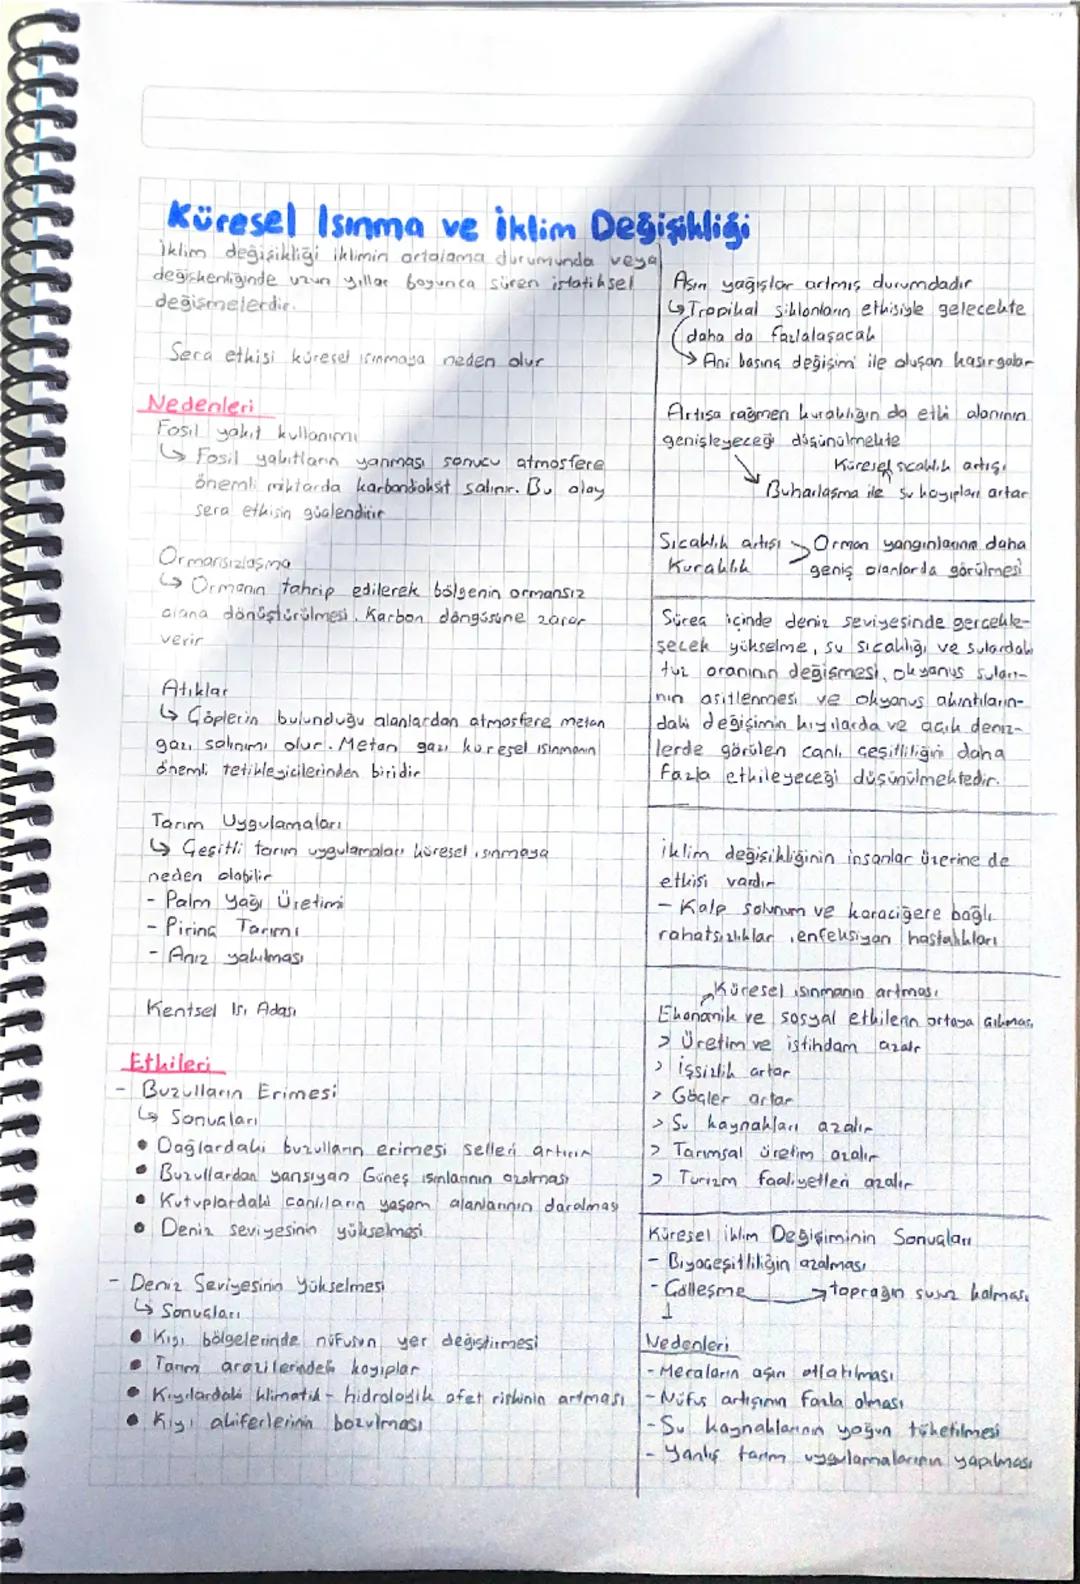 Küresel Isınma ve İklim Değişikliği
İklim değişikliği iklimin ortalama durumunda veya
değişkenliğinde uzun yıllar boyunca süren istatiksel
değişmelerdir.
Sera etkisi küresel ısınmaya neden olur
Nedenleri
Fosil yakıt kullanımı
↳ Fosil yakıtların yanması sonucu atmosfere
önemli miktarda karbondioksit salınır. Bu olay
sera etkisin güçlendirir
Ormansızlaşma
↳ Ormanın tahrip edilerek bölgenin ormansız
alana dönüştürülmesi. Karbon döngüsüne zarar
verir
Atıklar
↳ Çöplerin bulunduğu alanlardan atmosfere metan
gazı salınımı olur. Metan gazı küresel ısınmanın
önemli tetikleyicilerinden biridir
Tarım Uygulamaları
↳ Çeşitli tarım uygulamaları küresel ısınmaya
neden olabilir
- Palm Yağı Üretimi
- Pirinç Tarımı
- Anız yakılması
Kentsel Isı Adası
Etkileri
- Buzulların Erimesi
↳ Sonuçları
• Dağlardaki buzulların erimesi selleri artırır
• Buzullardan yansıyan Güneş ışınlarının azalması
• Kutuplardaki canlıların yaşam alanlarının daralması
• Deniz seviyesinin yükselmesi
- Deniz Seviyesinin Yükselmesi
↳ Sonuçları
• Kıyı bölgelerinde nüfusun yer değiştirmesi
• Tarım arazilerindeki kayıplar
• Kıyılardaki klimatik - hidrolojik afet riskinin artması
• Kıyı akiferlerinin bozulması
Aşırı yağışlar artmış durumdadır
↳ Tropikal siklonların etkisiyle gelecekte
daha da fazlalaşacak
→ Ani basınç değişimi ile oluşan kasırgalar
Artışa rağmen kuraklığın da etki alanının
genişleyeceği düşünülmekte
Küresel sıcaklık artışı
Buharlaşma ile su kayıpları artar
Sıcaklık artışı → Orman yangınlarının daha
Kuraklık geniş alanlarda görülmesi
Süreç içinde deniz seviyesinde gerçekle-
şecek yükselme, su sıcaklığı ve sulardaki
tuz oranının değişmesi, okyanus suları-
nın asitlenmesi ve okyanus akıntıların-
daki değişimin kıyılarda ve açık deniz-
lerde görülen canlı çeşitliliğini daha
fazla etkileyeceği düşünülmektedir.
İklim değişikliğinin insanlar üzerine de
etkisi vardır
- Kalp solunum ve karaciğere bağlı
rahatsızlıklar, enfeksiyon hastalıkları
Küresel ısınmanın artması
Ekonomik ve sosyal etkilerin ortaya çıkması
> Üretim ve istihdam azalır
> İşsizlik artar
> Göçler artar
> Su kaynakları azalır
> Tarımsal üretim azalır
> Turizm faaliyetleri azalır
Küresel İklim Değişiminin Sonuçları
- Biyoçeşitliliğin azalması
- Çölleşme → toprağın susuz kalması
↓
Nedenleri
- Meraların aşırı otlatılması
- Nüfus artışının fazla olması
- Su kaynaklarının yoğun tüketilmesi
- Yanlış tarım uygulamalarının yapılması